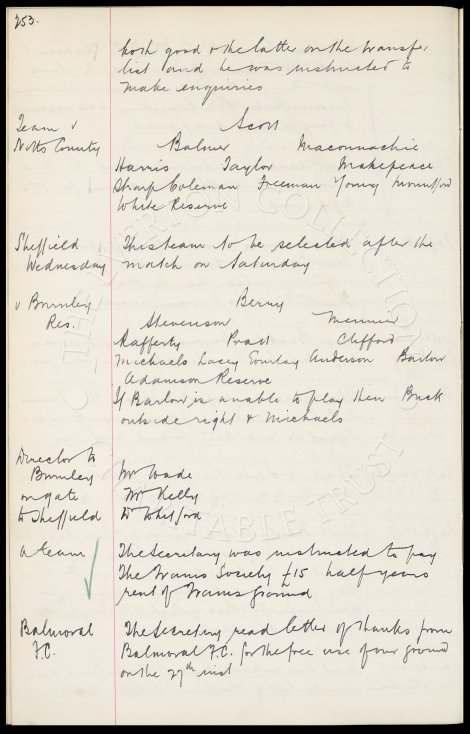 253.
both good & the latter on the transfer
list and he was instructed to
make enquiries
Team v
Notts County
Scott
Balmer Maconnachie
Harris Taylor Makepeace
Sharp Coleman Freeman Young Mountford
White Reserve
Sheffield
Wednesday
This team to be selected after the
match on Saturday
v Burnley
Res.
Berry
Stevenson Meunier
Rafferty Pratt Clifford
Michaels Lacey Gourlay Anderson Barlow
Adamson Reserve
If Barlow is unable to play then Buck
outside right & Michaels
Director to
Burnley
on gate
to Sheffield
Mr Wade
Mr Kelly
Dr Whitford
A team
The Secretary was instructed to pay
The Trams Society £15 half years
rent of Trams ground
Balmoral
F.C.
The Secretary read letter of thanks from
Balmoral F.C. for the free use of our ground
on the 27th inst
THE EVERTON COLLECTION
CHARITABLE TRUST